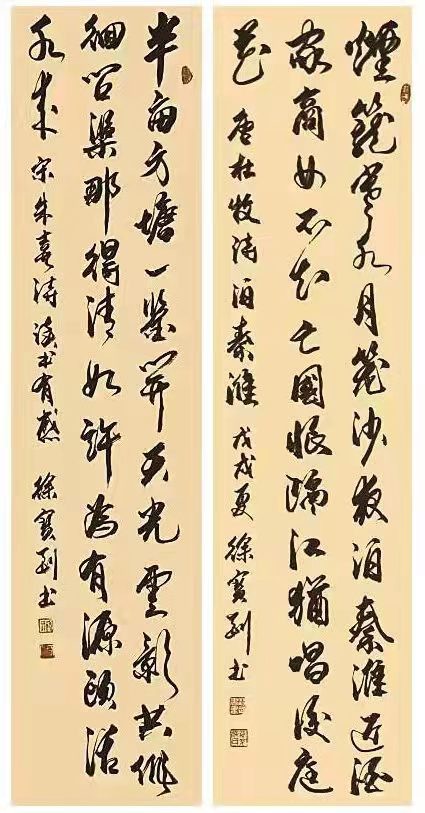 煙籠寒水月笼沙夜泊秦淮近酒
家商女不知亡國恨隔江猶唱後庭
花 唐杜牧詩泊秦淮 戊戌夏 徐寶書
半畝方塘一鑒開天光雲影共徘
徊問渠那得清如許為有源頭活
水來 宋朱熹詩讀書有感 徐寶書